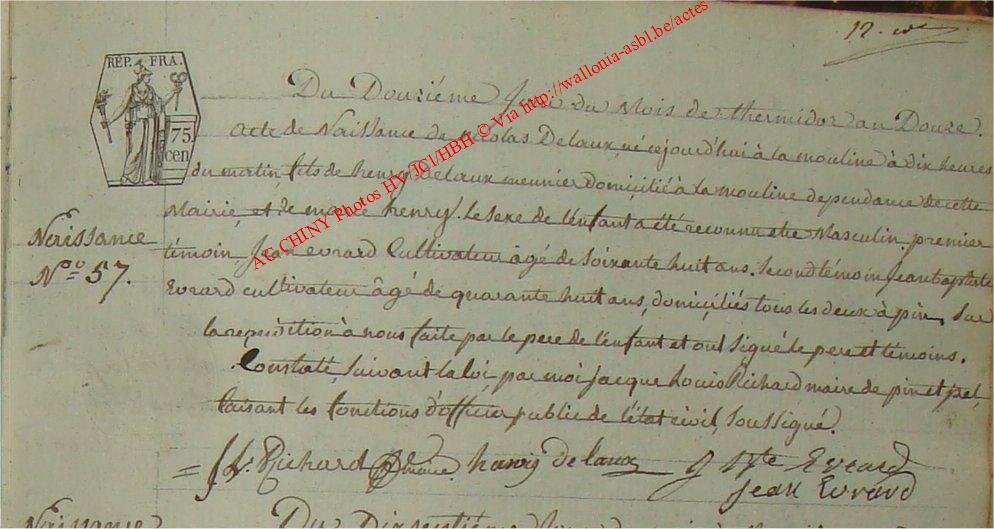 12.
RÉP. FRA.
75.
cen
AC CHINY Photos HY JCl/HBH © Via http://wallonia-asbl.be/actes
Naissance
N.º 57.
Du Douziéme jour du Mois de thermidor an Douze.
Acte de Naissance de Nicolas Delaux, né cejourd'hui à la mouline à Dix heures
du matin, fils de henry Delaux meunier Domicilié à La mouline dependance de cette
Mairie, et de marie henry. Le sexe de l'enfant a été reconnu etre Masculin. premier
témoin Jean evrard Cultivateur âgé de soixante huit ans. Second témoin jean baptiste
Evrard cultivateur âgé de quarante huit ans, domiciliés tous les deux à pin, sur
la requisition à nous faite par le pere de l'enfant et ont signé le pere et témoins.
Constaté, suivant la loi, par moi jacque Louis Richard maire de pin et jzel,
faisant les fonctions d'officier public de l'état civil, soussigné.
= J L. Richard maire henry de laux J Bte Evrard
Jean Evrard
Naissance Du Dix septiéme